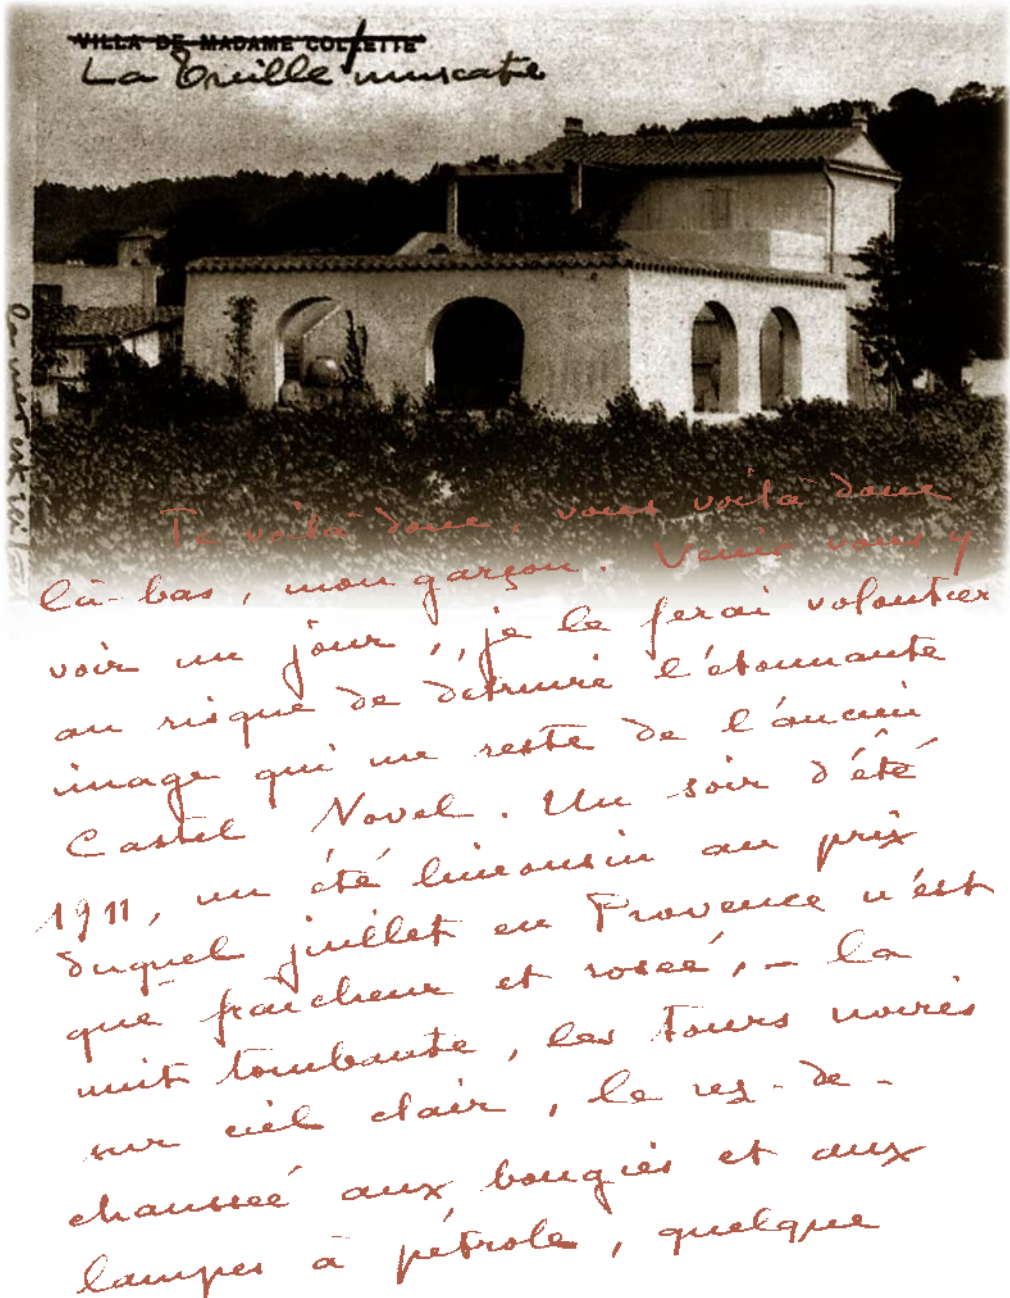 VILLA DE MADAME COLLETTE
La Treille muscate
Te voilà donc, vous voilà donc
là-bas, mon garçon. Venir vous y
voir un jour, je le ferai volontier
au risque de détruire l'étonnante
image qui me reste de l'ancien
Castel Novel. Un soir d'été
1911, un été limousin au prix
duquel juillet en Provence n'est
que fraîcheur et rosée, - la
nuit tombante, les tours noires
sur ciel clair, le rez-de-
chaussée aux bougies et aux
lampes à pétrole, quelque